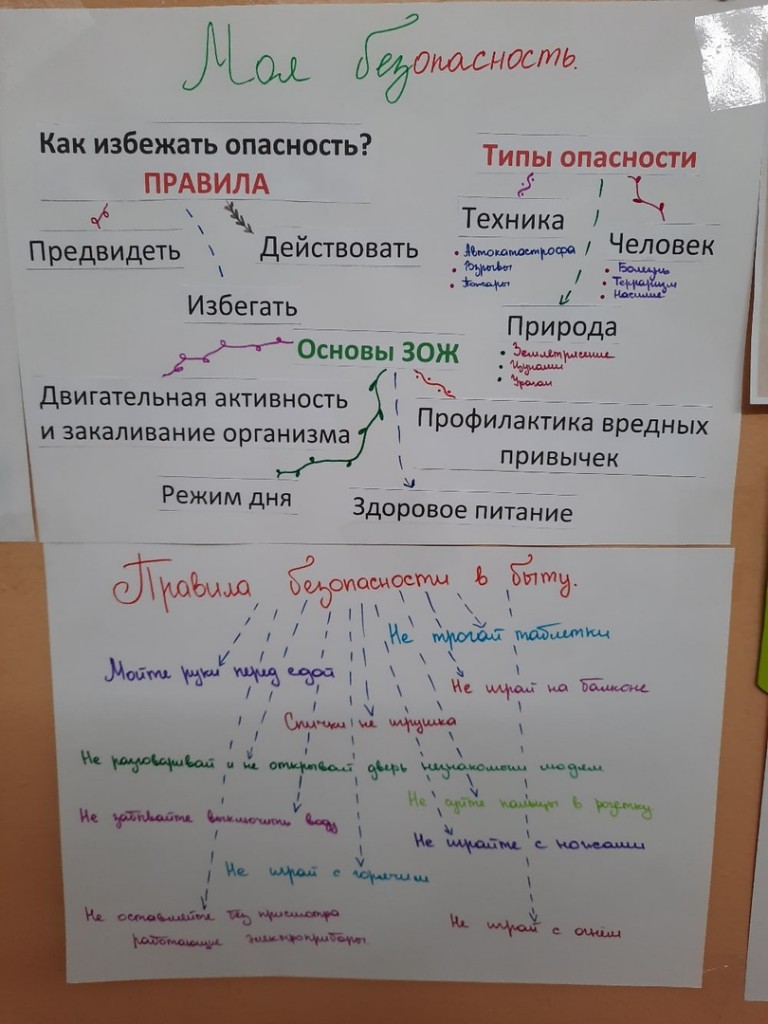 Моя безопасность.
Как избежать опасность?
ПРАВИЛА
Предвидеть
Действовать
Избегать
Типы опасности
Техника
Автокатастрофа
Взрывы
Пожары
Человек
Болезнь
Терраризм
Насилие
Природа
Землетрясение
Цунами
Ураган
Основы ЗОЖ
Двигательная активность
и закаливание организма
Профилактика вредных
привычек
Режим дня
Здоровое питание
Правила безопасности в быту.
Не трогай таблетки
Мойте руки перед едой
Не играй на балконе
Спички не игрушка
Не разговаривай и не открывай дверь незнакомым людям
Не суйте пальцы в розетку
Не забывайте выключить воду
Не играйте с ножами
Не играй с горячим
Не оставляйте без присмотра
работающие электроприборы
Не играй с огнём